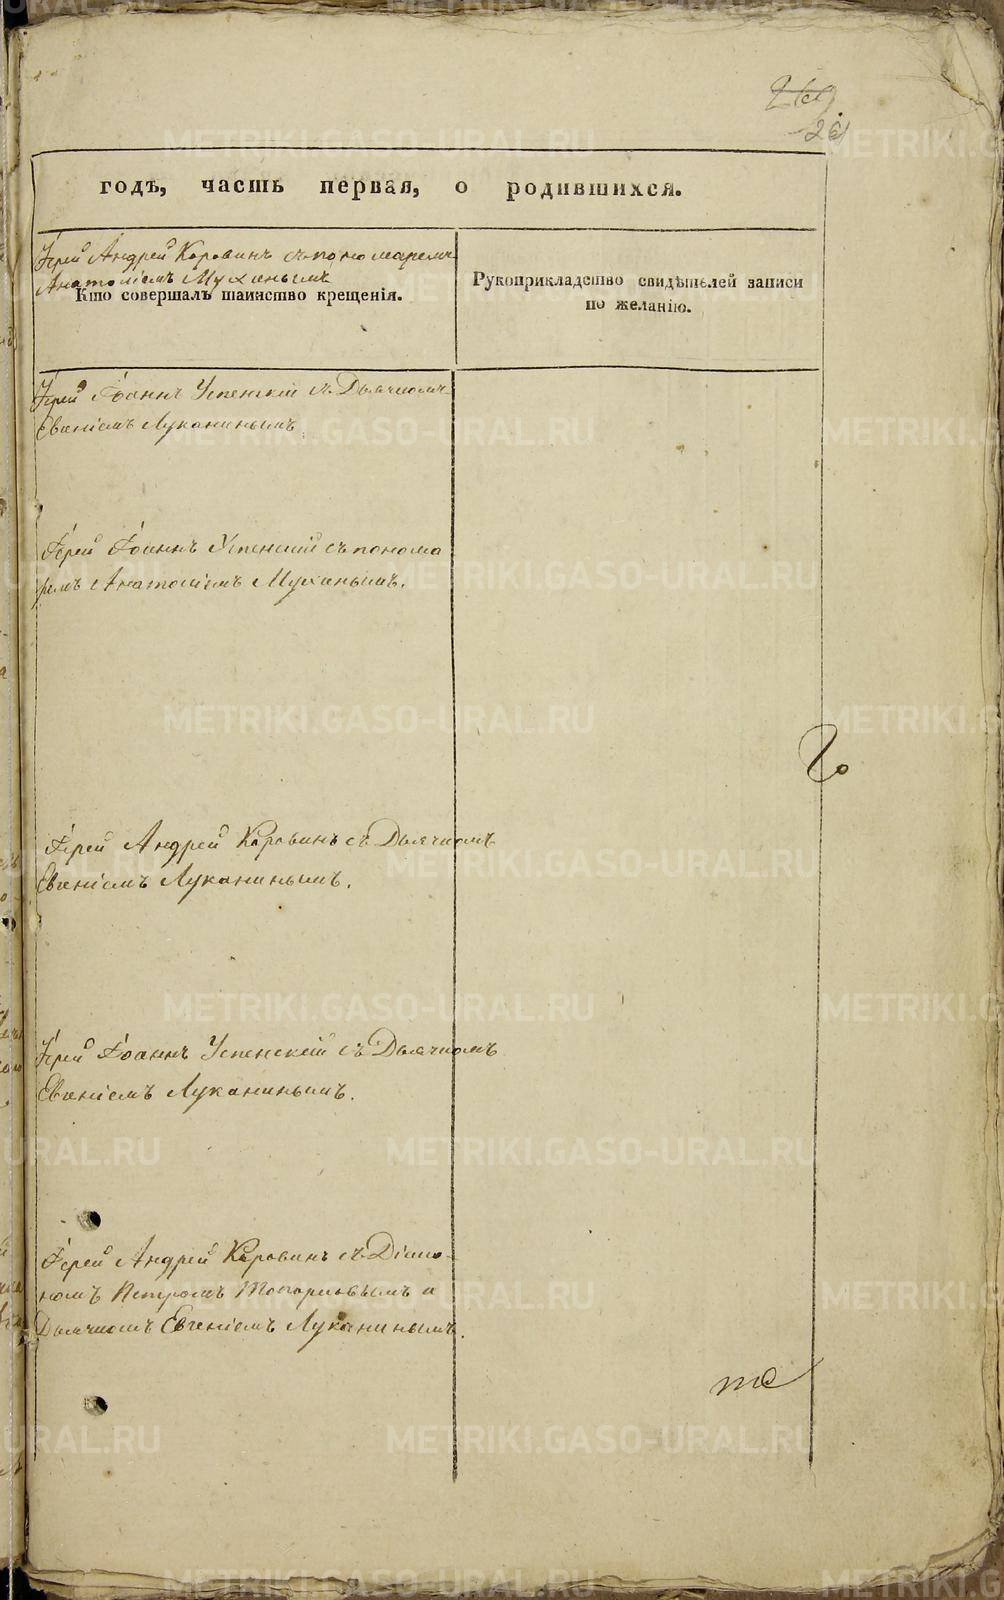 годъ, часть первая, о родившихся.
Іерей Андрей Коровинъ съ пономаремъ
Анатоліемъ Мухинымъ
Кто совершалъ таинство крещенія.
Рукоприкладство свидѣтелей записи
по желанію.
Іерей Іоаннъ Успенскій съ Дьячкомъ
Евгеніемъ Луканинымъ.
Іерей Іоаннъ Успенскій съ понома
ремъ Анатоліемъ Мухинымъ.
Іерей Андрей Коровинъ съ Дьячкомъ
Евгеніемъ Луканинымъ.
Іерей Іоаннъ Успенскій съ Дьячкомъ
Евгеніемъ Луканинымъ.
Іерей Андрей Коровинъ съ Діако-
номъ Петромъ Топорковымъ и
Дьячкомъ Евгеніемъ Луканинымъ.
METRIKI.GASO-URAL.RU